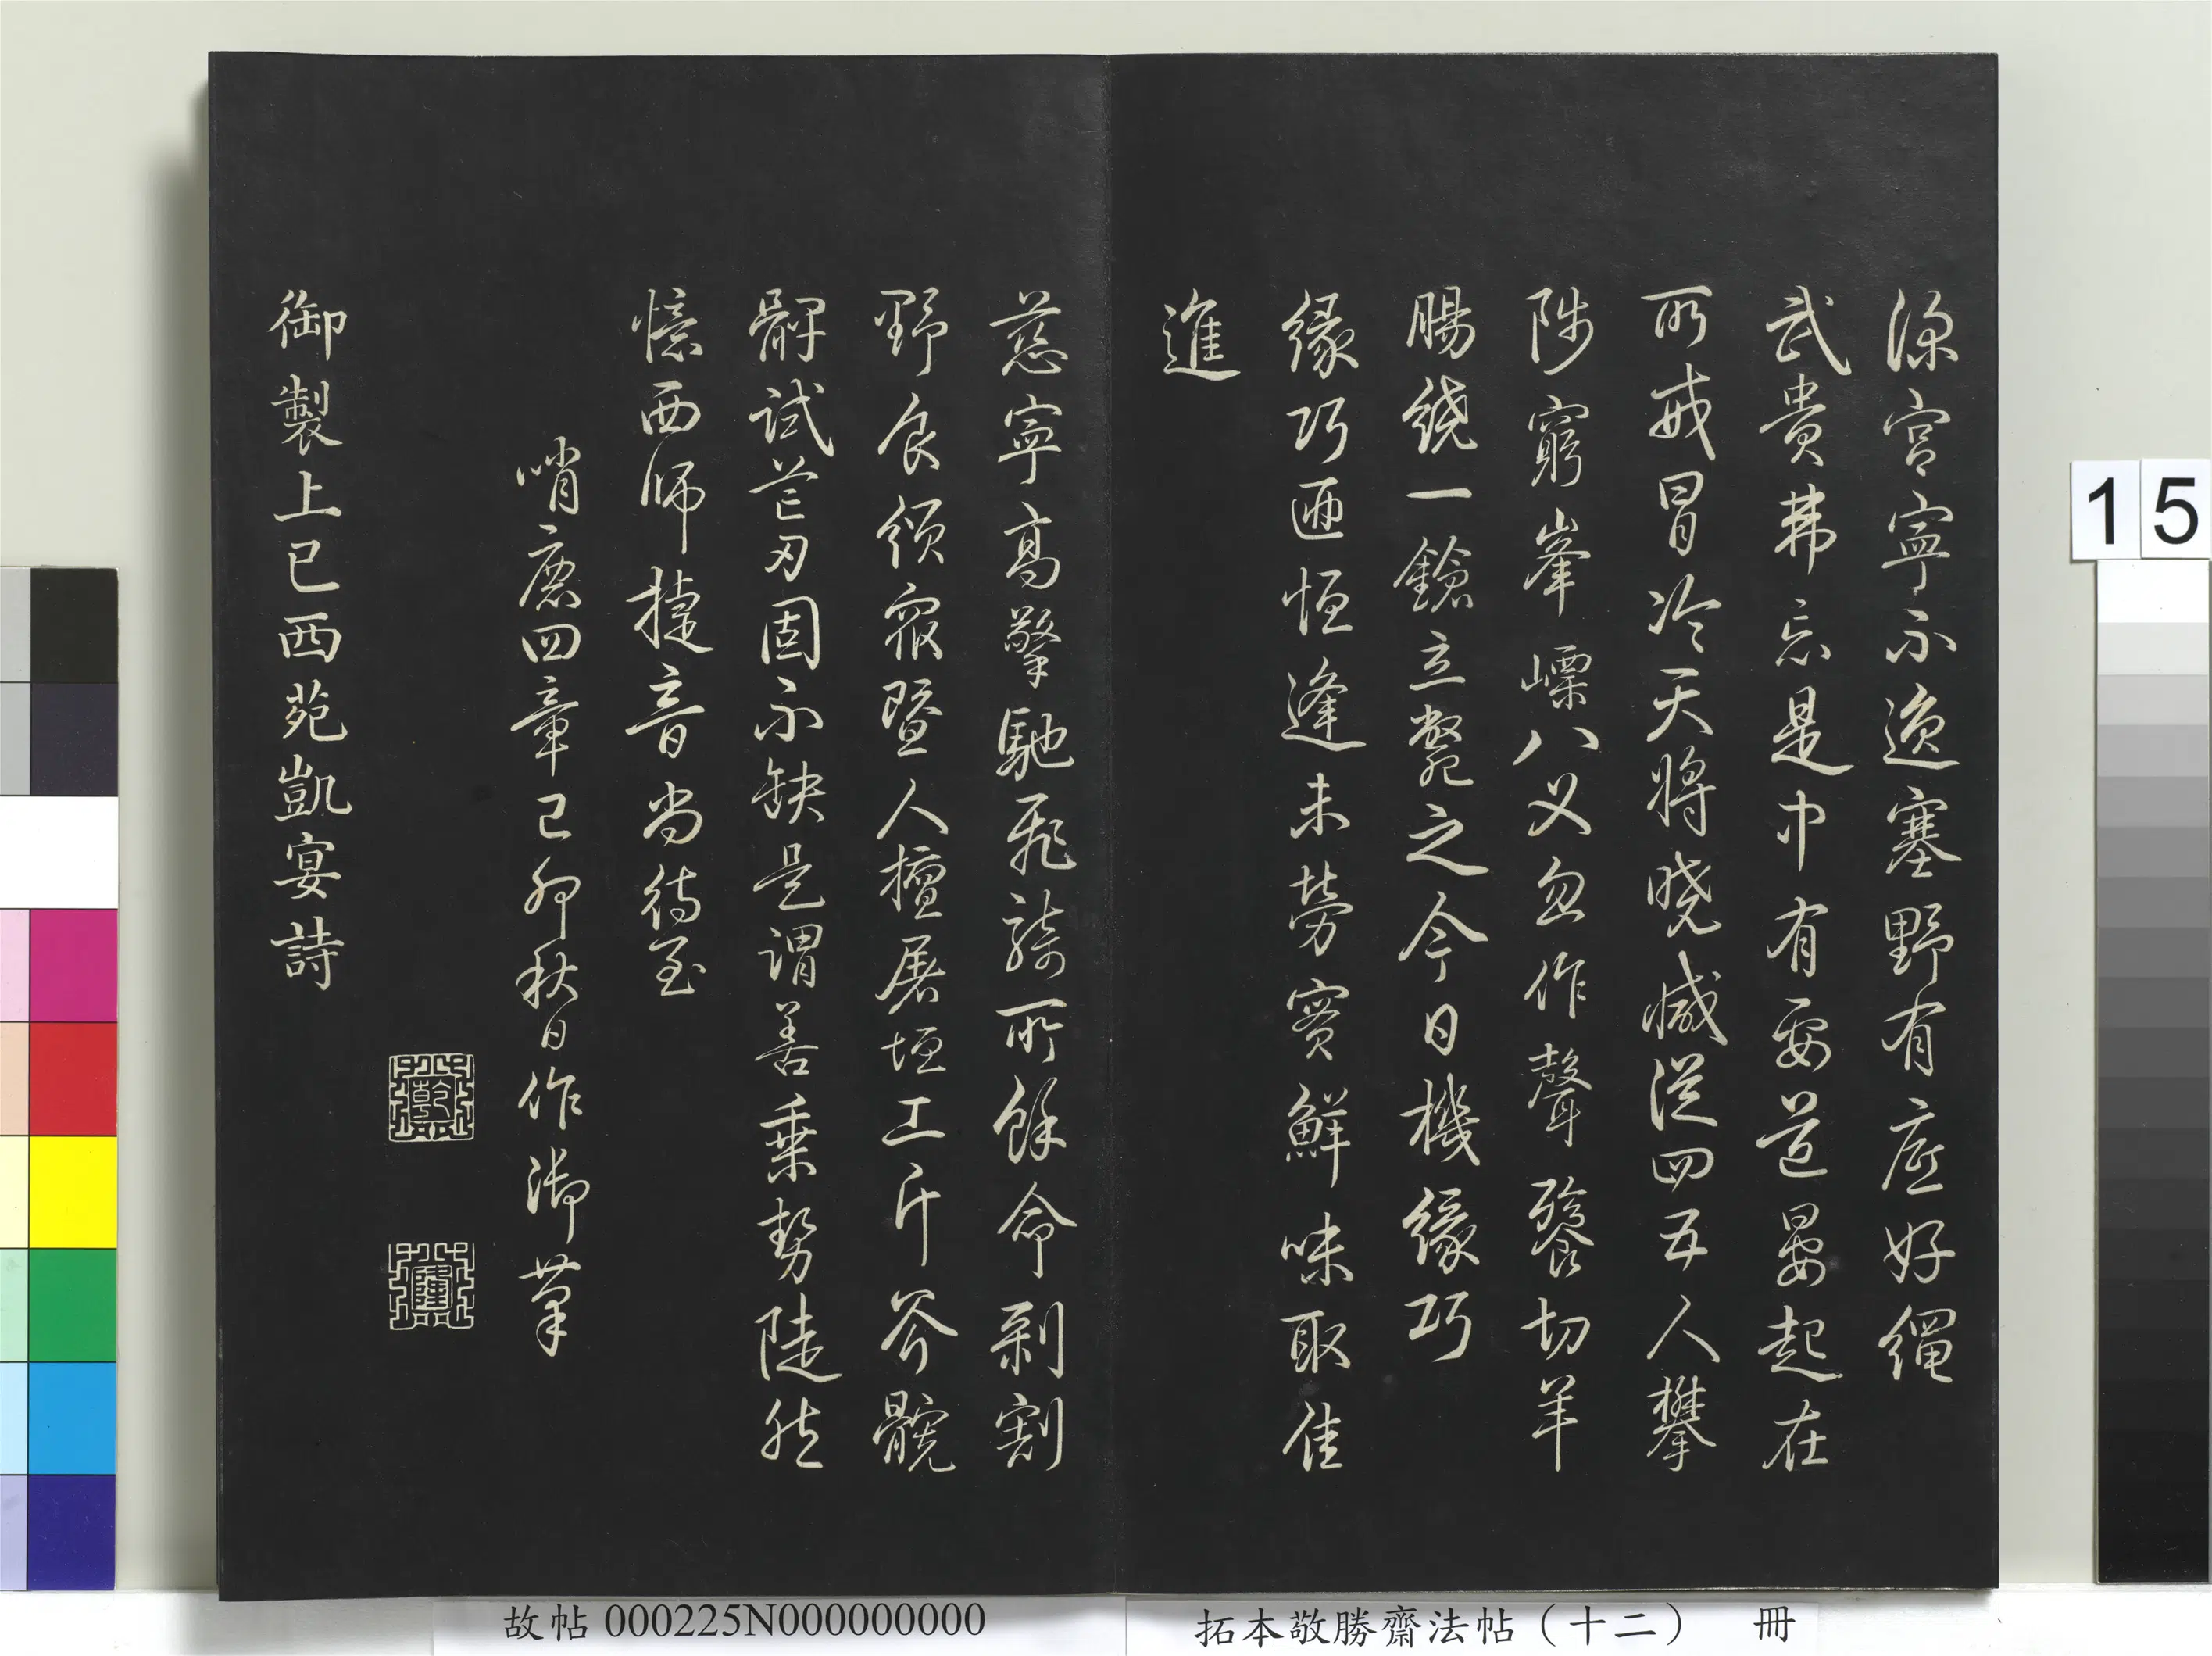 深宮寧不逸塞野有底好繩
武貴弗忘是中有要道晏起在
所戒冒冷天將曉減從四五人攀
陟窮峯嶫八叉忽作聲餮切羊
腸繞一鎗立斃之今日機緣巧
緣巧迺恒逢未勞賓鮮味取佳
進
慈寧高擎馳飛騎所餘命剥割
野食頒衆暨人擅屠垣工斤斧髖
髀試芒刃固不缺是謂善乘勢陡然
憶西師捷音尚待至
哨鹿四章己卯秋日作御筆
乾
隆
御製上巳西苑凱宴詩
15
故帖 000225N000000000
拓本敬勝齋法帖（十二） 冊